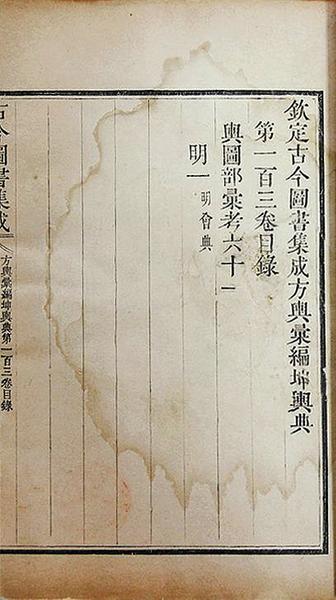 欽定古今圖書集成方輿彙編坤輿典
第一百三卷目錄
輿圖部彙考六十一
明一 明會典
古今圖書集成
方輿彙編坤輿典第一百三卷目錄